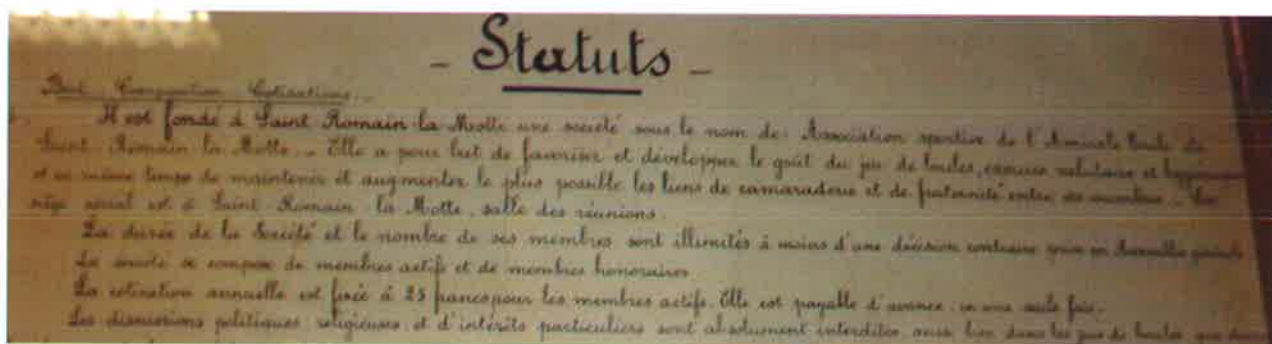 - Statuts -
But Composition Cotisations
Il est fondé à Saint Romain la Motte une société sous le nom de: Association sportive de l'Amicale boule de
Saint Romain la Motte. - Elle a pour but de favoriser et développer le goût du jeu de boules, exercice salutaire et
et en même temps de maintenir et augmenter le plus possible les liens de camaraderie et de fraternité entre ses membres. - Son
siège social est à Saint Romain la Motte, salle des réunions.
La durée de la Société et le nombre de ses membres sont illimités à moins d'une décision contraire prise en Assemblée générale
La société se compose de membres actifs et de membres honoraires.
La cotisation annuelle est fixée à 25 francs pour les membres actifs. Elle est payable d'avance, en une seule fois.
Les discussions politiques, religieuses, et d'intérêts particuliers sont absolument interdites, aussi bien dans les jeux de boules, que